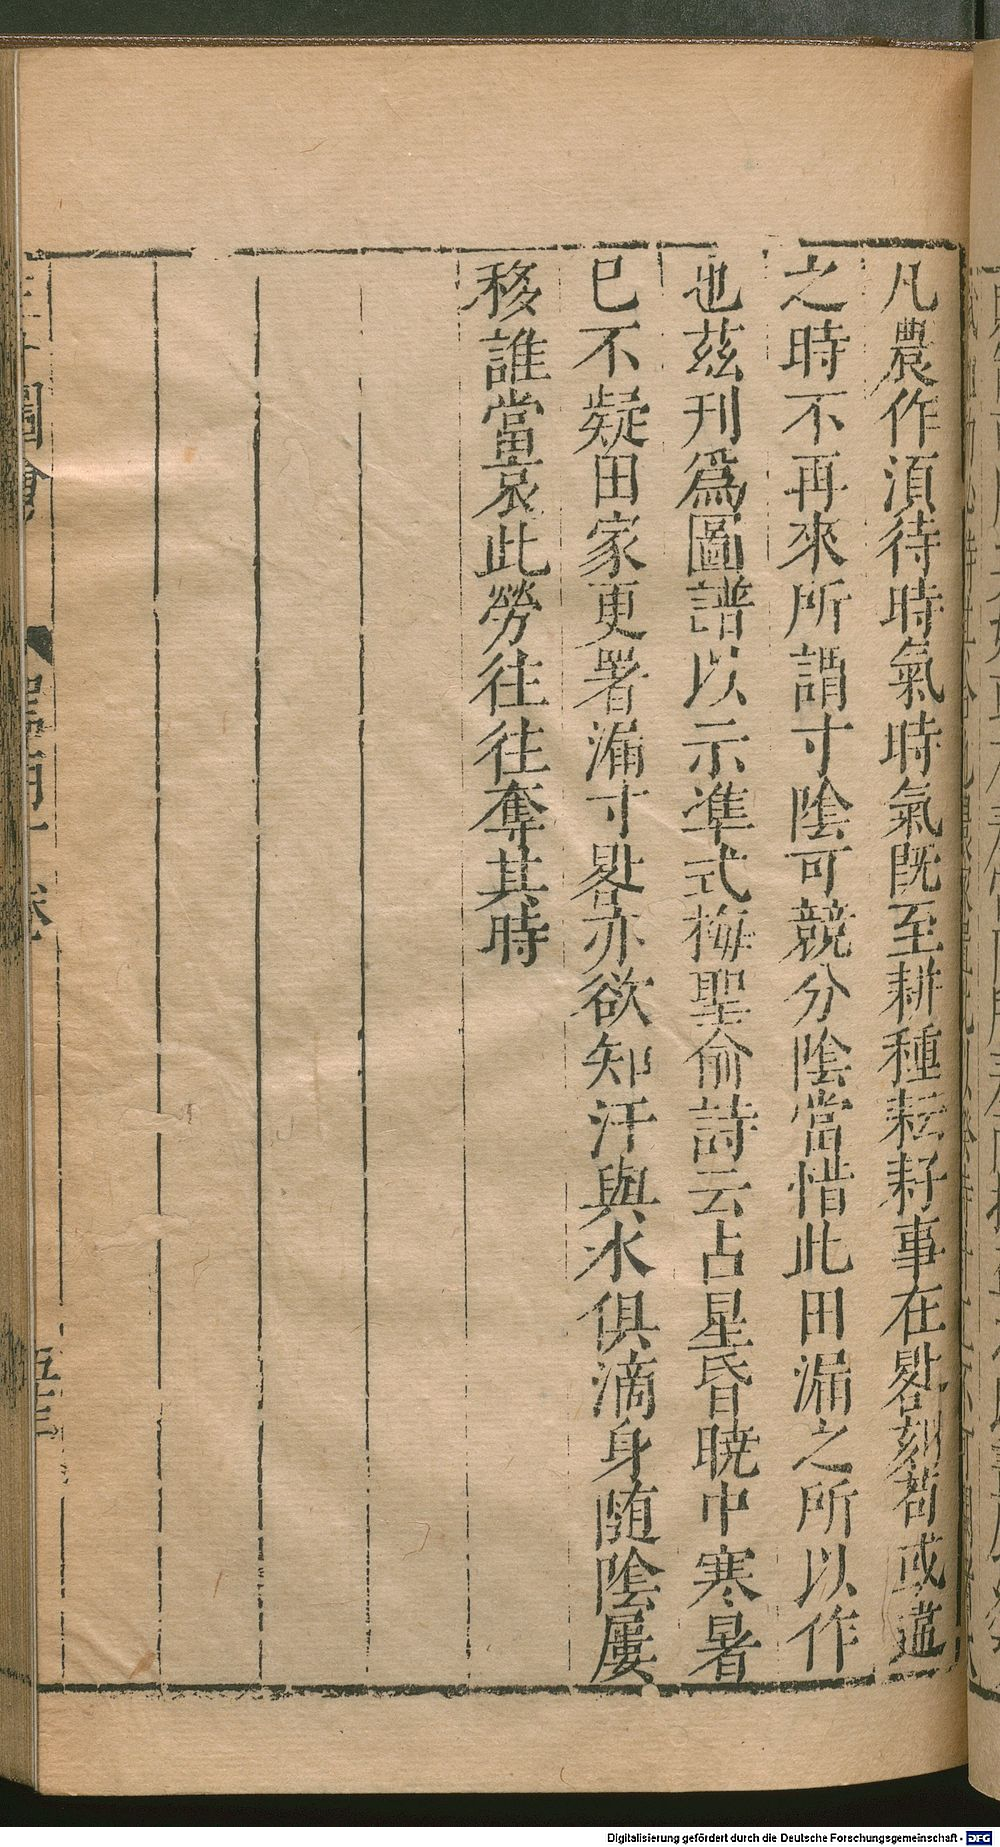 凡農作湏待時氣時氣既至耕種耘耔事在晷刻苟或違
之時不再來所謂寸隂可競分隂當惜此田漏之所以作
也茲刊爲圖譜以示凖式梅聖俞詩云占星昏曉中寒暑
已不疑田家更署漏寸晷亦欲知汗與水俱滴身随隂屢
移誰當哀此勞往往奪其時
圖會
卷
五十三
Digitalisierung gefördert durch die Deutsche Forschungsgemeinschaft - DFG